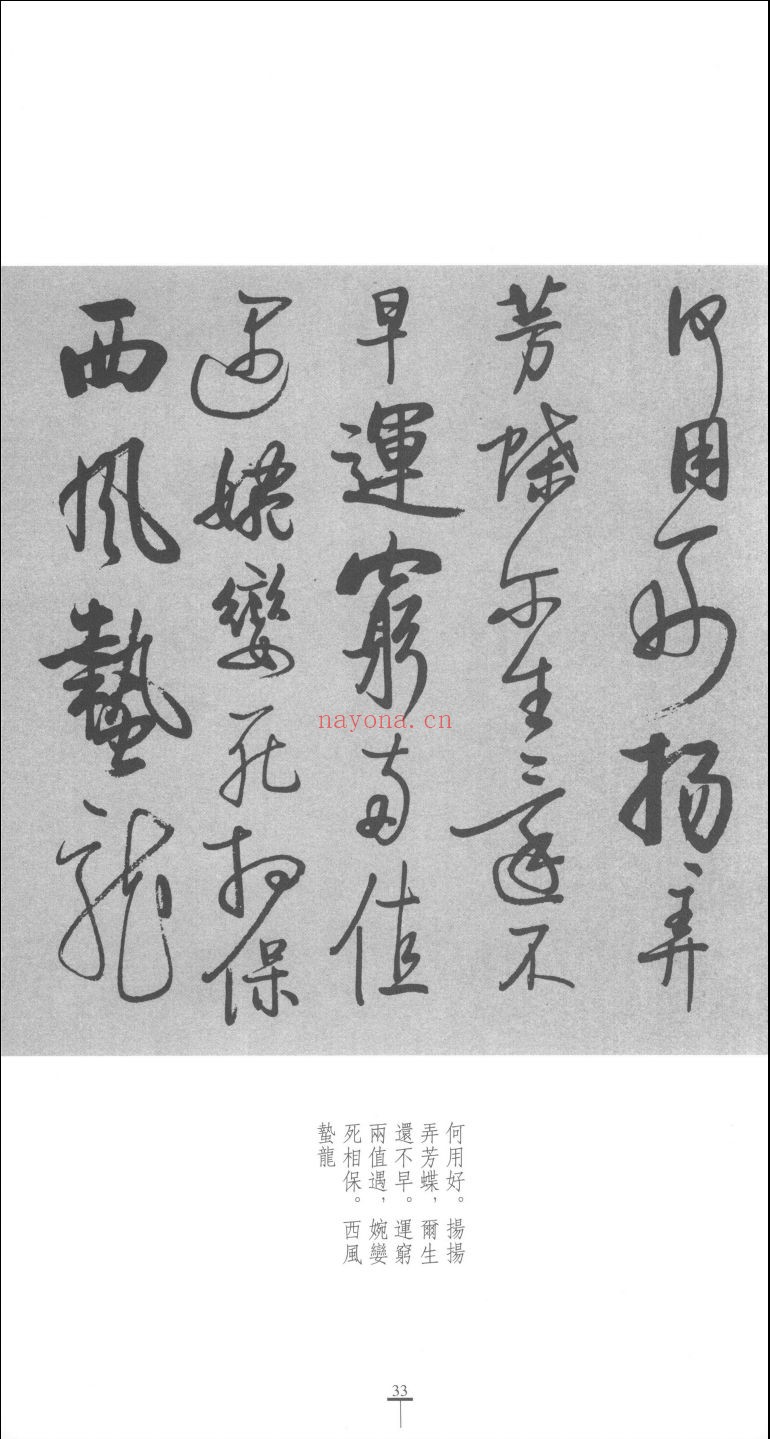 何用好揚弄
芳蝶尔生還不
早運窮兩值
遇婉孌死相保
西風蟄龍
nayona.cn
何用好。揚揚
弄芳蝶，爾生
還不早。運窮
兩值遇，婉孌
死相保。西風
蟄龍
33